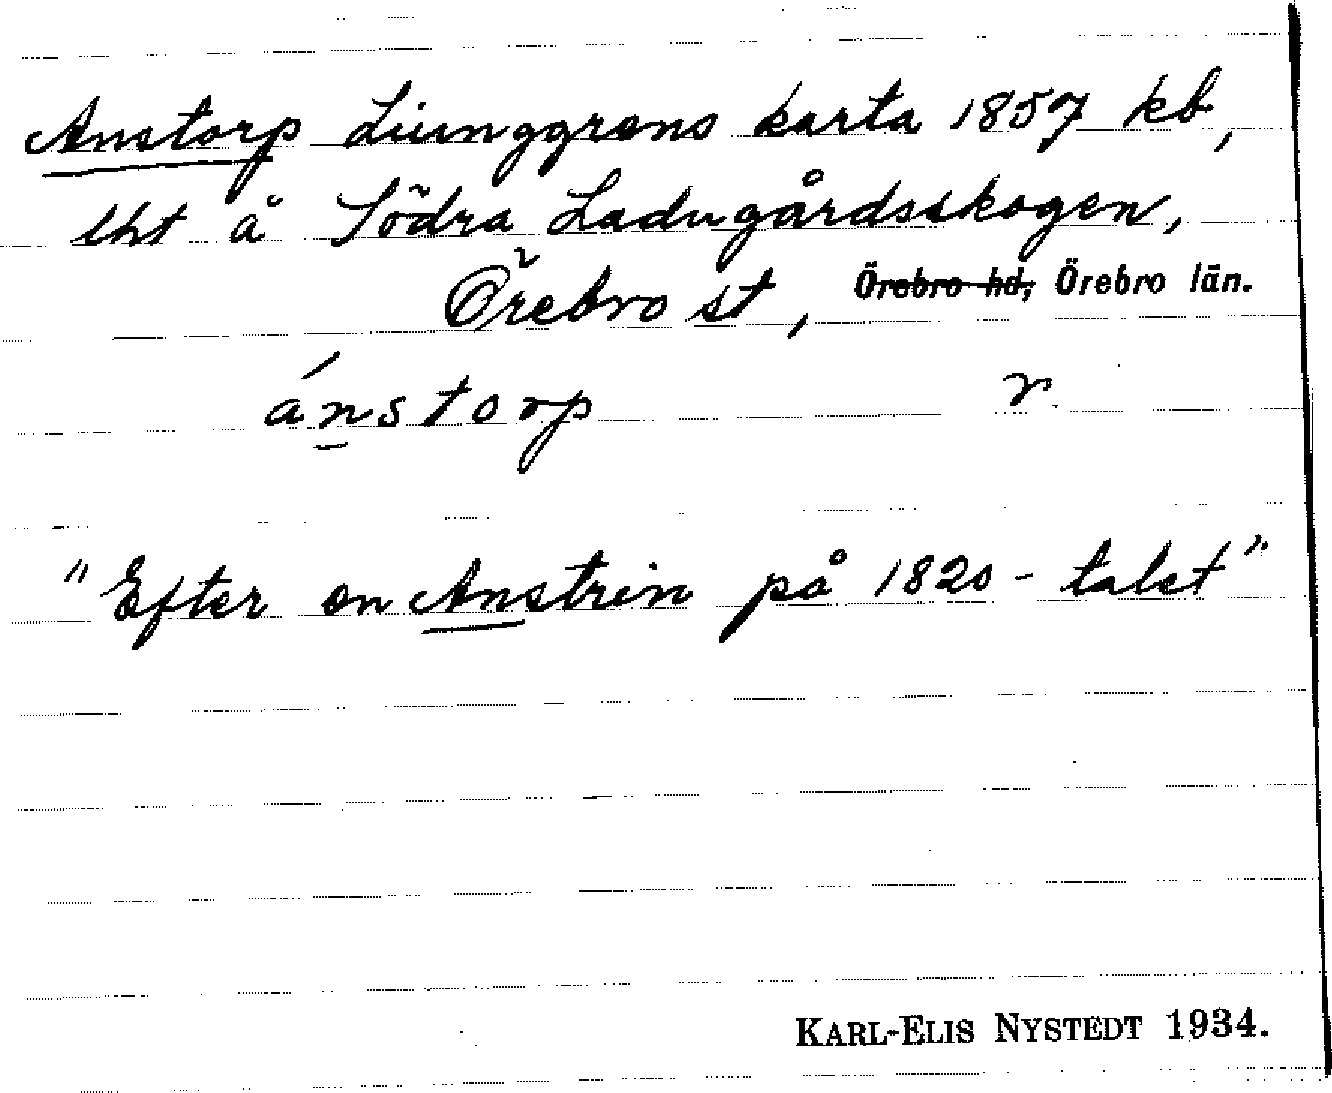 Anstorp Liunggrens karta 1857 kb,
lht å Södra Ladugårdsskogen,
Örebro st, Örebro hd, Örebro län.
ánstorp r
"Efter en Anstrin på 1820-talet"
KARL-ELIS NYSTEDT 1934.